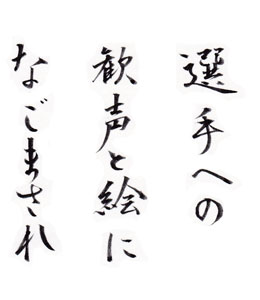 選手への
歓声と絵に
なごまされ